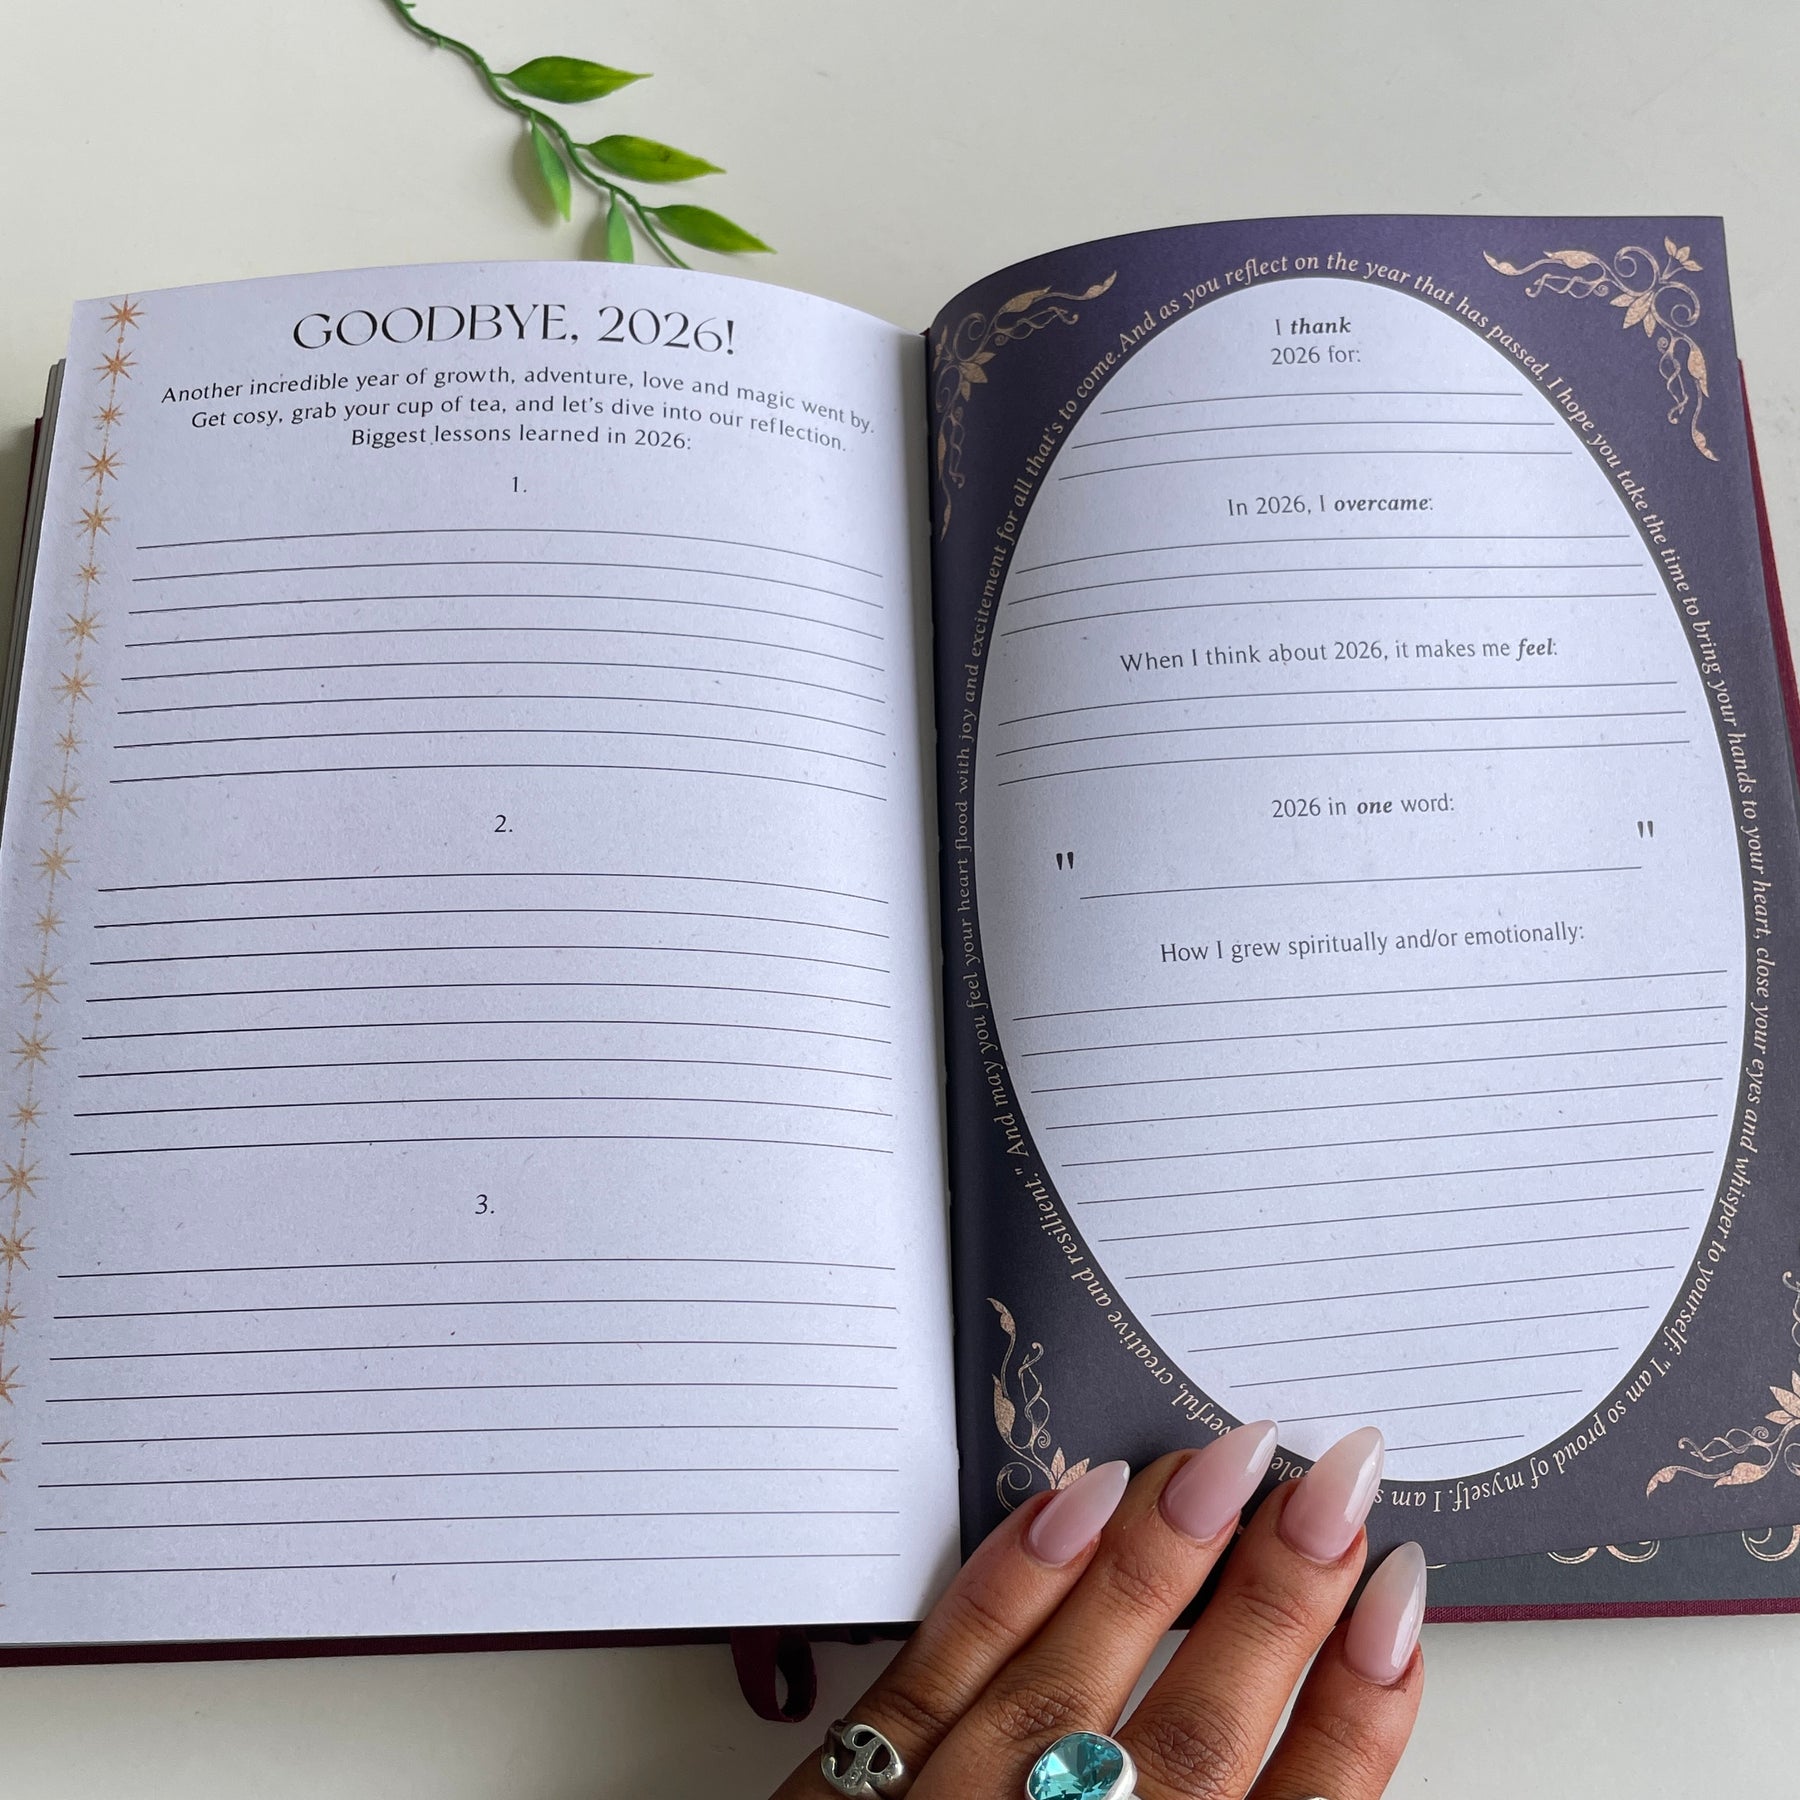 GOODBYE, 2026!
Another incredible year of growth, adventure, love and magic went by.
Get cosy, grab your cup of tea, and let's dive into our reflection.
Biggest lessons learned in 2026:
1.
2.
3.
And as you reflect on the year that has passed, I hope you take the time to bring your hands to your heart, close your eyes and whisper to yourself: "I am so proud of myself. I am creative and resilient." And may you feel your heart flood with joy and excitement for all that's to come.
I thank
2026 for:
In 2026, I overcame:
When I think about 2026, it makes me feel:
2026 in one word:
" "
How I grew spiritually and/or emotionally: